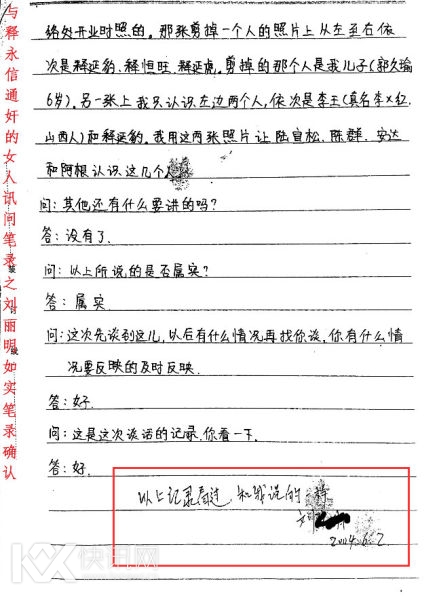 与释永信通奸的女人讯问笔录之刘丽明如实笔录确认
络处开业时照的。那张剪掉一个人的照片上从左至右依
次是释延豹、释恒旺、释延鹰。剪掉的那个人是我儿子(郭久瑜
6岁)。另一张上我只认识左边两个人,依次是李王(真名李×红.
山西人)和释延豹。我用这两张照片让陆宜松、陈群、安达
和阿根认识这几个人
问:其他还有什么要讲的吗?
答:没有了.
问:以上所说的是否属实?
答:属实.
问:这次先谈到这儿,以后有什么情况再找你谈,你有什么情
况要反映的及时反映.
答:好.
问:这是这次谈话的记录,你看一下.
答:好.
以上记录看过,和我说的一样
刘
2004.6.2
KX快讯网